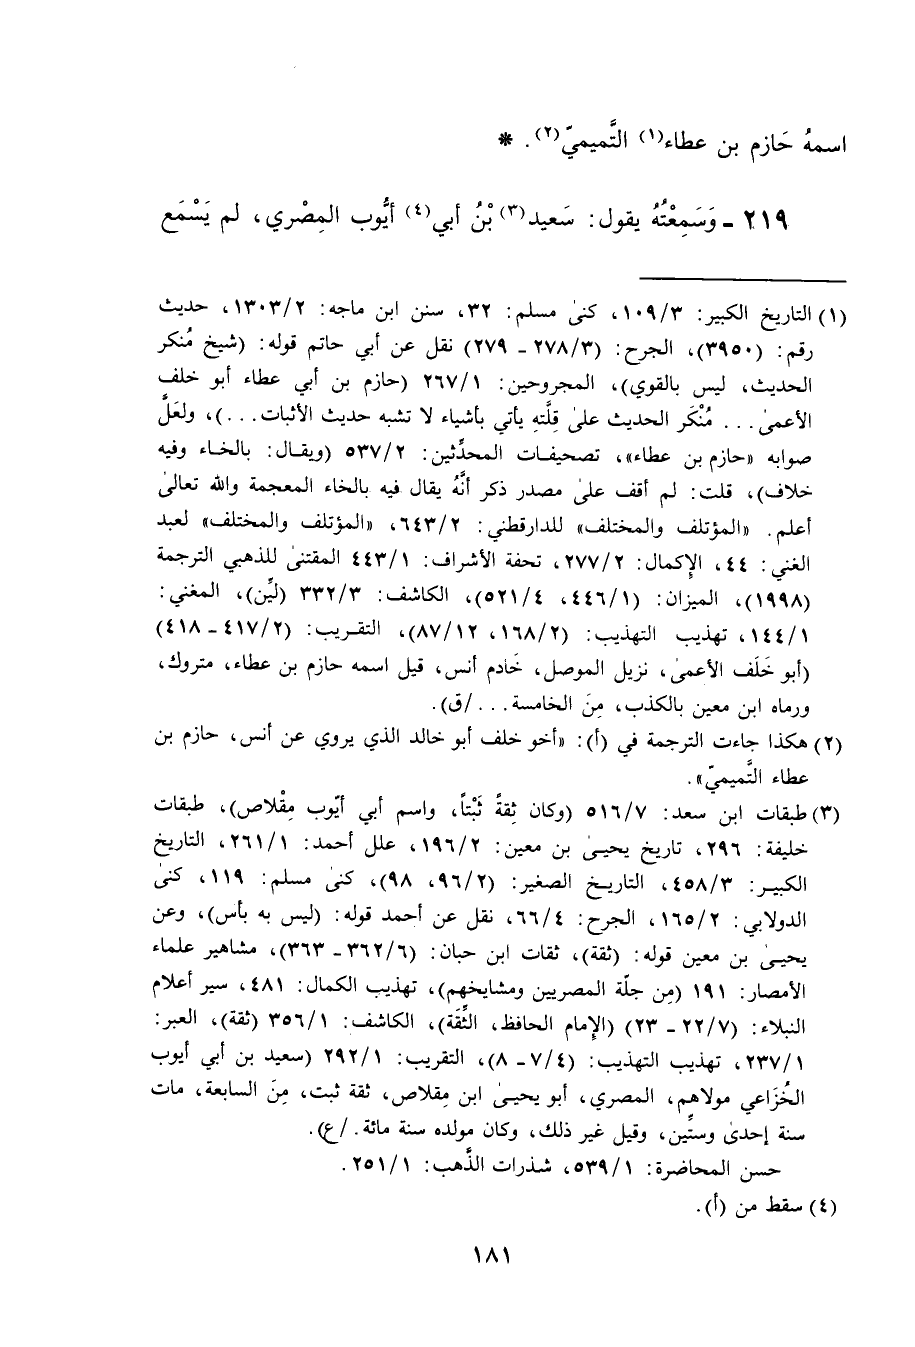 اسمهُ حَازم بن عطاء(١) التَّميميّ(٢). *
٢١٩ ـ وَسَمِعْتُهُ يقول: سَعيد(٣) بْنُ أبي(٤) أيُّوب المِصْري، لم يَسْمَع
(١) التاريخ الكبير: ١٠٩/٣، كنىٰ مسلم: ٣٢، سنن ابن ماجه: ١٣٠٣/٢، حديث
رقم: (٣٩٥٠)، الجرح: (٢٧٨/٣ ـ ٢٧٩) نقل عن أبي حاتم قوله: (شيخ مُنكر
الحديث، ليس بالقوي)، المجروحين: ٢٦٧/١ (حازم بن أبي عطاء أبو خلف
الأعمىٰ... مُنْكَر الحديث علىٰ قِلَّتهِ يأتي بأشياء لا تشبه حديث الأثبات...)، ولعَلَّ
صوابه «حازم بن عطاء»، تصحيفات المحدِّثين: ٥٣٧/٢ (ويقال: بالخاء وفيه
خلاف)، قلت: لم أقف علىٰ مصدر ذكر أنَّهُ يقال فيه بالخاء المعجمة والله تعالىٰ
أعلم. «المؤتلف والمختلف» للدارقطني: ٦٤٣/٢، «المؤتلف والمختلف» لعبد
الغني: ٤٤، الإكمال: ٢٧٧/٢، تحفة الأشراف: ٤٤٣/١ المقتنىٰ للذهبي الترجمة
(١٩٩٨)، الميزان: (٤٤٦/١، ٥٢١/٤)، الكاشف: ٣٣٢/٣ (ليِّن)، المغني:
١٤٤/١، تهذيب التهذيب: (١٦٨/٢، ٨٧/١٢)، التقريب: (٤١٧/٢ ـ ٤١٨)
(أبو خَلَف الأعمىٰ، نزيل الموصل، خَادم أنس، قيل اسمه حازم بن عطاء، متروك،
ورماه ابن معين بالكذب، مِنَ الخامسة... /ق).
(٢) هكذا جاءت الترجمة في (أ): «أخو خلف أبو خالد الذي يروي عن أنس، حازم بن
عطاء التَّميميّ».
(٣) طبقات ابن سعد: ٥١٦/٧ (وكان ثِقةً ثَبْتاً، واسم أبي أيّوب مِقْلاص)، طبقات
خليفة: ٢٩٦، تاريخ يحيىٰ بن معين: ١٩٦/٢، علل أحمد: ٢٦١/١، التاريخ
الكبير: ٤٥٨/٣، التاريخ الصغير: (٩٦/٢، ٩٨)، كنىٰ مسلم: ١١٩، كنىٰ
الدولابي: ١٦٥/٢، الجرح: ٦٦/٤، نقل عن أحمد قوله: (ليس به بأس)، وعن
يحيىٰ بن معين قوله: (ثقة)، ثقات ابن حبان: (٣٦٢/٦ ـ ٣٦٣)، مشاهير علماء
الأمصار: ١٩١ (مِن جلّة المصريين ومشايخهم)، تهذيب الكمال: ٤٨١، سير أعلام
النبلاء: (٢٢/٧ ـ ٢٣) (الإمام الحافظ، الثِّقَة)، الكاشف: ٣٥٦/١ (ثقة)، العبر:
٢٣٧/١، تهذيب التهذيب: (٧/٤ ـ ٨)، التقريب: ٢٩٢/١ (سعيد بن أبي أيوب
الخُزَاعي مولاهم، المصري، أبو يحيىٰ ابن مِقلاص، ثقة ثبت، مِنَ السابعة، مات
سنة إحدىٰ وستِّين، وقيل غير ذلك، وكان مولده سنة مائة. /ع).
حسن المحاضرة: ٥٣٩/١، شذرات الذَّهب: ٢٥١/١.
(٤) سقط من (أ).
١٨١